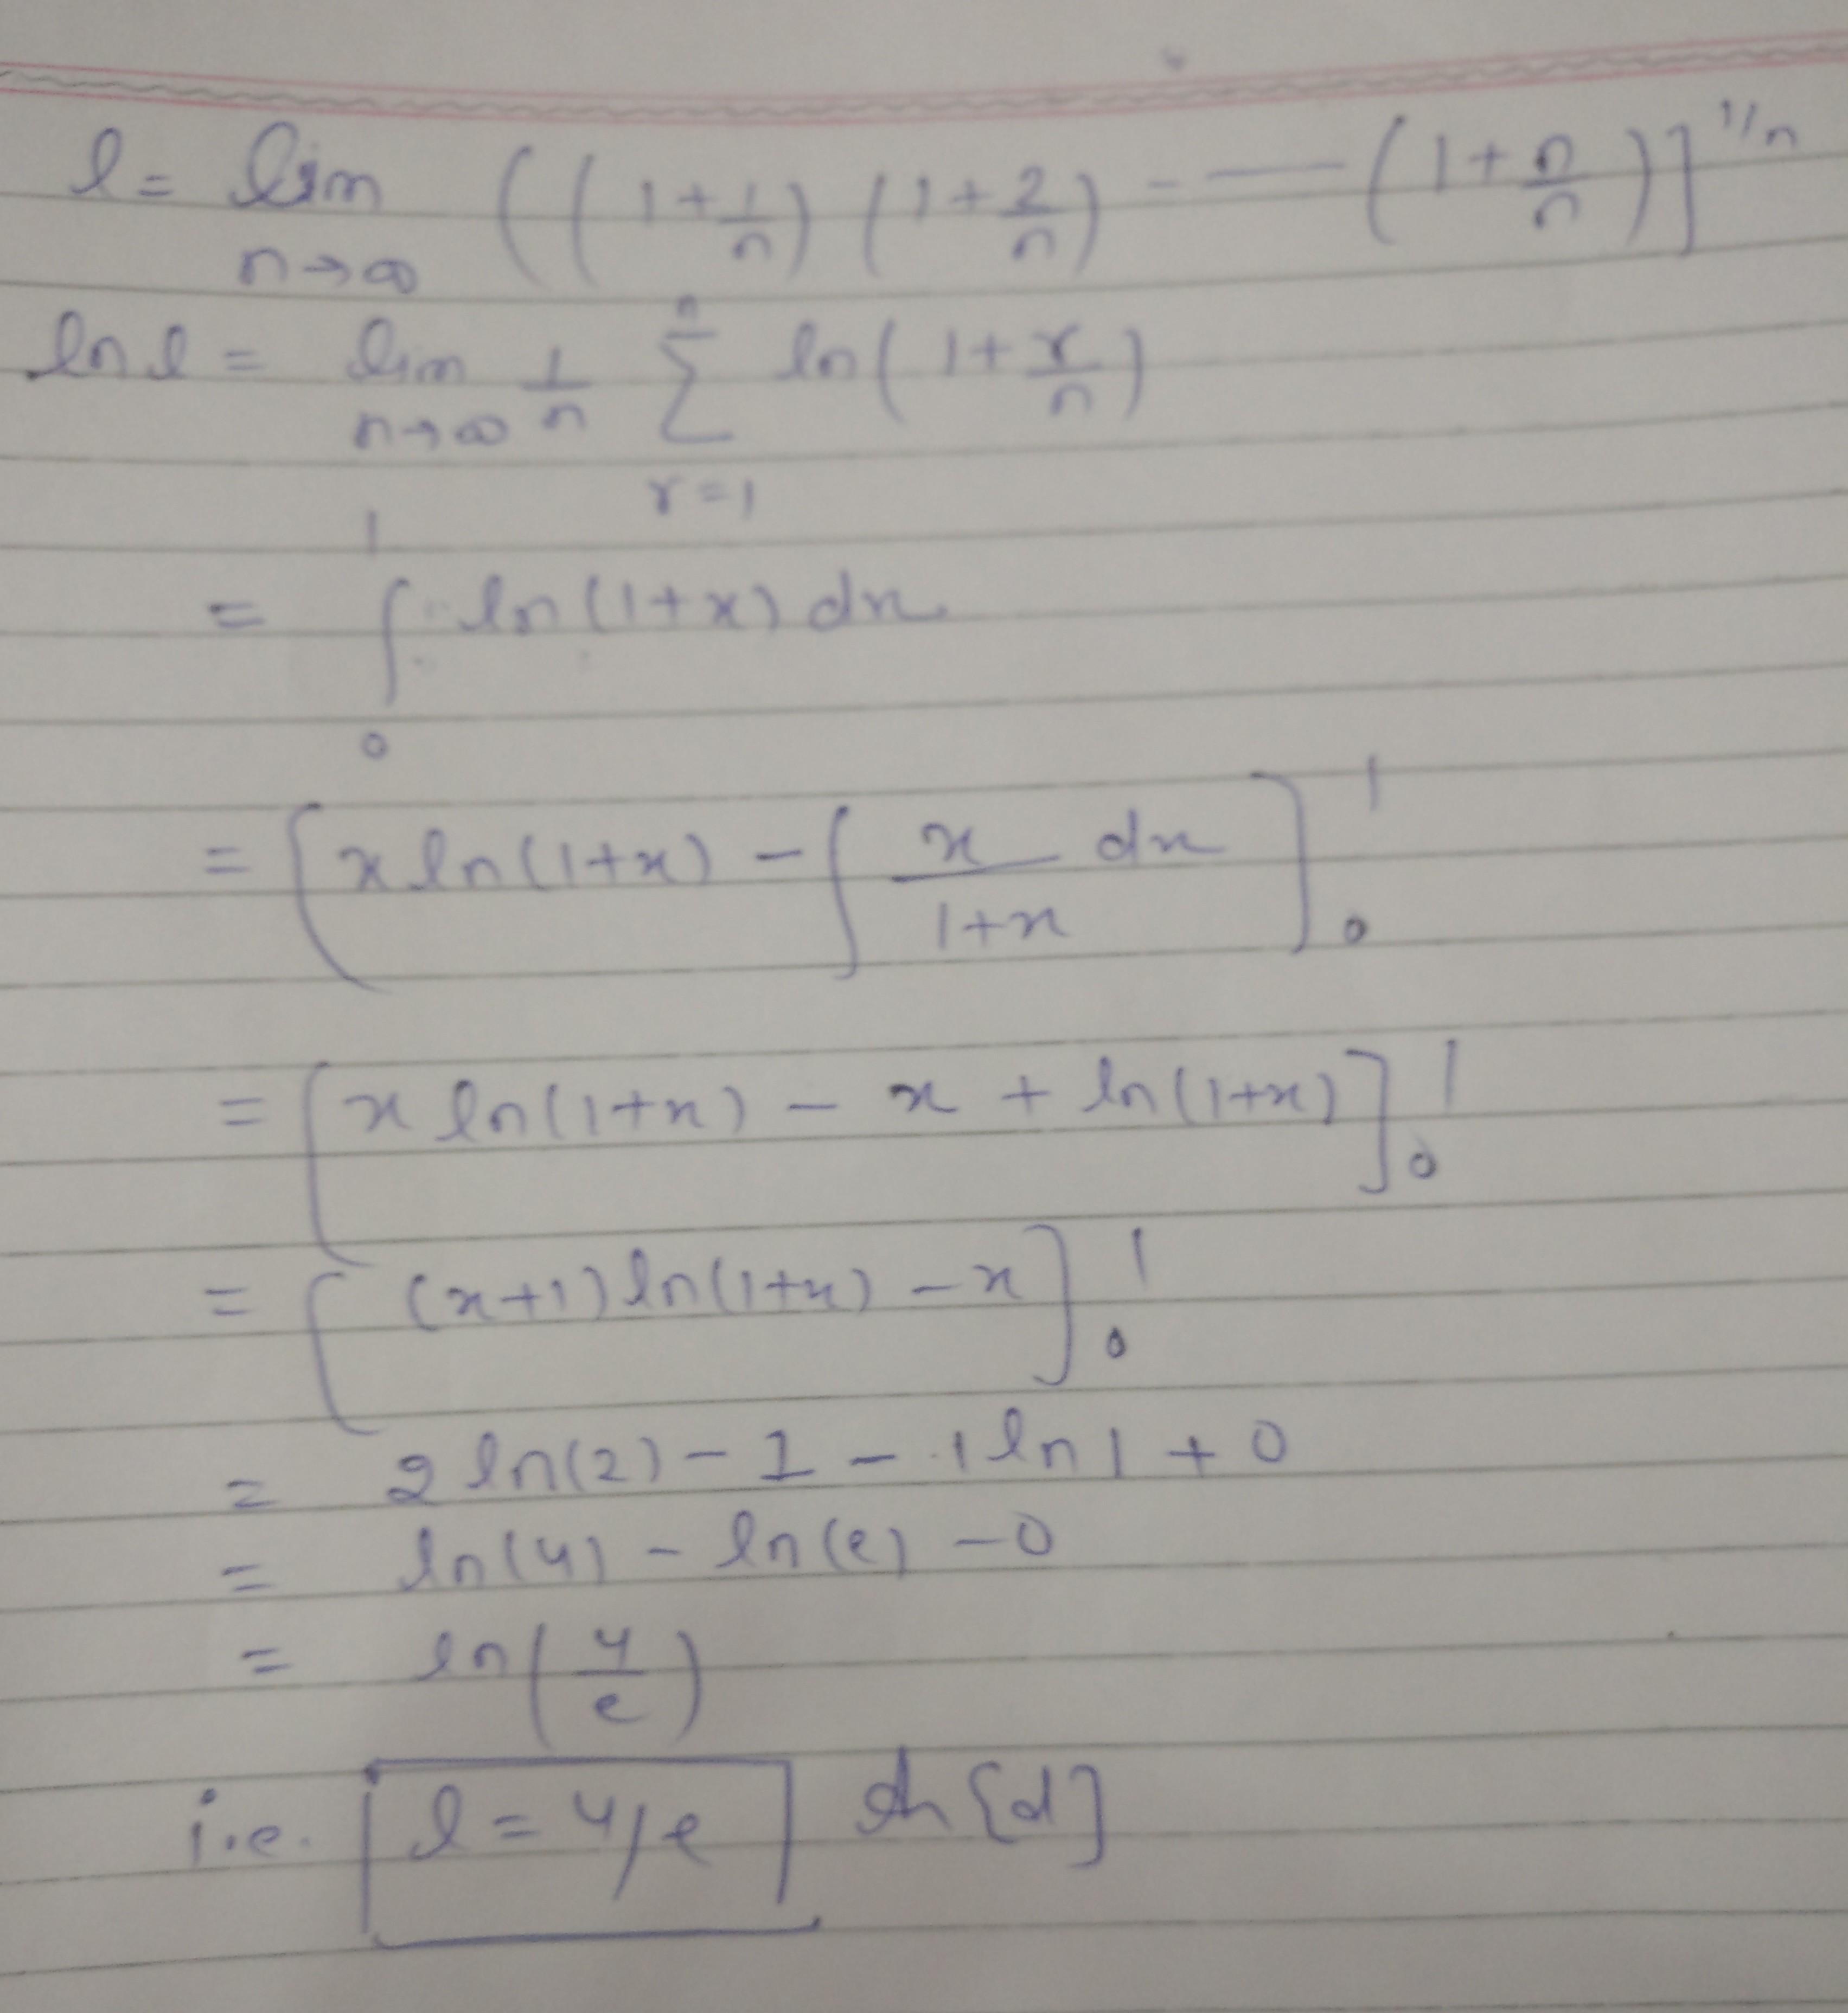 l = lim n→∞ ((1+1/n)(1+2/n) - - — (1+n/n)]^1/n
ln l = lim n→∞ 1/n n Σ r=1 ln(1+r/n)
= ∫ 1 0 ln(1+x) dx
= [x ln(1+x) - ∫ x/1+x dx] 1 0
= [x ln(1+x) - x + ln(1+x)] 1 0
= [(x+1) ln(1+x) - x] 1 0
= 2 ln(2) - 1 - 1 ln 1 + 0
= ln(4) - ln(e) - 0
= ln(4/e)
i.e. l = 4/e [d]